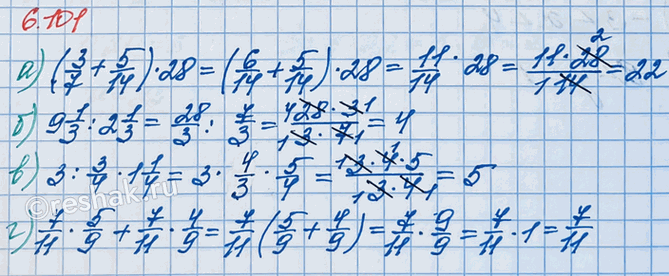 6.101
а) (3/7 + 5/14) · 28 = (6/14 + 5/14) · 28 = 11/14 · 28 = 11 · 28 2 / 1 14 = 22
б) 9 1/3 : 2 1/3 = 28/3 : 7/3 = 4 28 · 3 1 / 1 3 · 7 1 = 4
в) 3 : 3/4 · 1 1/4 = 3 · 4/3 · 5/4 = 1 3 · 4 1 · 5 / 1 3 · 4 1 = 5
г) 7/11 · 5/9 + 7/11 · 4/9 = 7/11 (5/9 + 4/9) = 7/11 · 9/9 = 7/11 · 1 = 7/11
reshak.ru